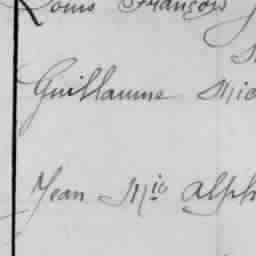 Louis François
Guillaume Mic
Jean Mie Alph